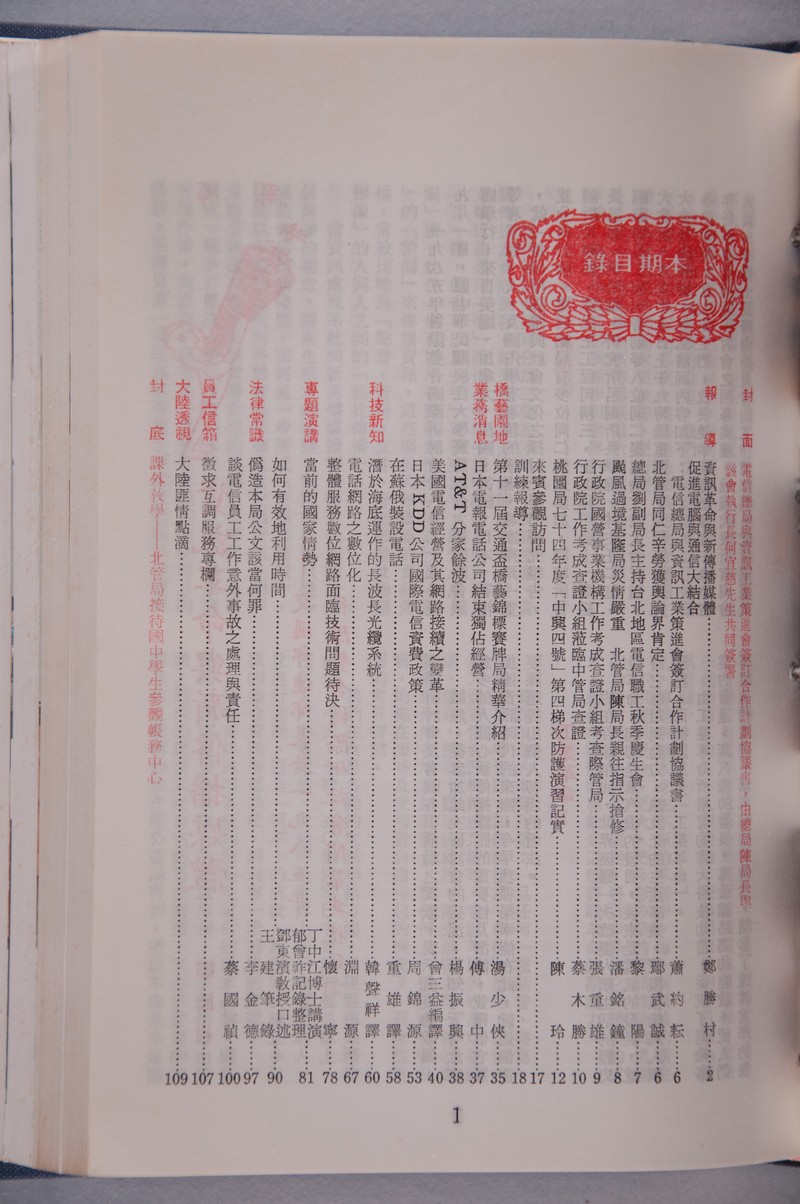 本期目錄
封面 電信總局與資訊工業策進會簽訂合作計劃協議書，由總局陳局長與
該會執行長何宜慈先生共同簽署
報導
資訊革命與新傳播媒體……鄭勝村……2
促進電腦與通信大結合
電信總局與資訊工業策進會簽訂合作計劃協議書……蕭約耘……6
北管局同仁辛勞獲輿論界肯定……鄢武誠……6
總局劉副局長主持台北地區電信職工秋季慶生會……黎陽……7
颱風過境基隆局災情嚴重　北管局陳局長親往指示搶修……潘銘鐘……8
行政院國營事業機構工作考成查證小組考查際管局……張重雄……9
行政院工作考成查證小組蒞臨中管局查證……蔡木勝……10
桃園局七十四年度「中興四號」第四梯次防護演習記實……陳玲……12
來賓參觀訪問……17
訓練報導……18
橋藝園地
第十一屆交通盃橋藝錦標賽牌局精華介紹……湯少俠……35
業務消息
日本電報電話公司結束獨佔經營……傅中……37
AT&T分家餘波……楊振興……38
美國電信經營及其網路接續之變革……曾三益編譯……40
日本KDD公司國際電信資費政策……周錦源……53
在蘇俄裝設電話……重雄譯……58
科技新知
潛於海底運作的長波長光纜系統……韓聲祥譯……60
電話網路之數位化……淵源……67
整體服務數位網路面臨技術問題待決……懷寧……78
專題演講
當前的國家情勢……丁中江博士講演
郁曾祚記錄整理……81
如何有效地利用時間……鄧東濱教授口述
王建筆錄……90
法律常識
偽造本局公文該當何罪……李金德……97
談電信員工工作意外事故之處理與責任……蔡國禎……100
員工信箱
徵求互調服務專欄……107
大陸透視
大陸匪情點滴……109
封底 課外教學——北管局接待國中學生參觀帳務中心
1